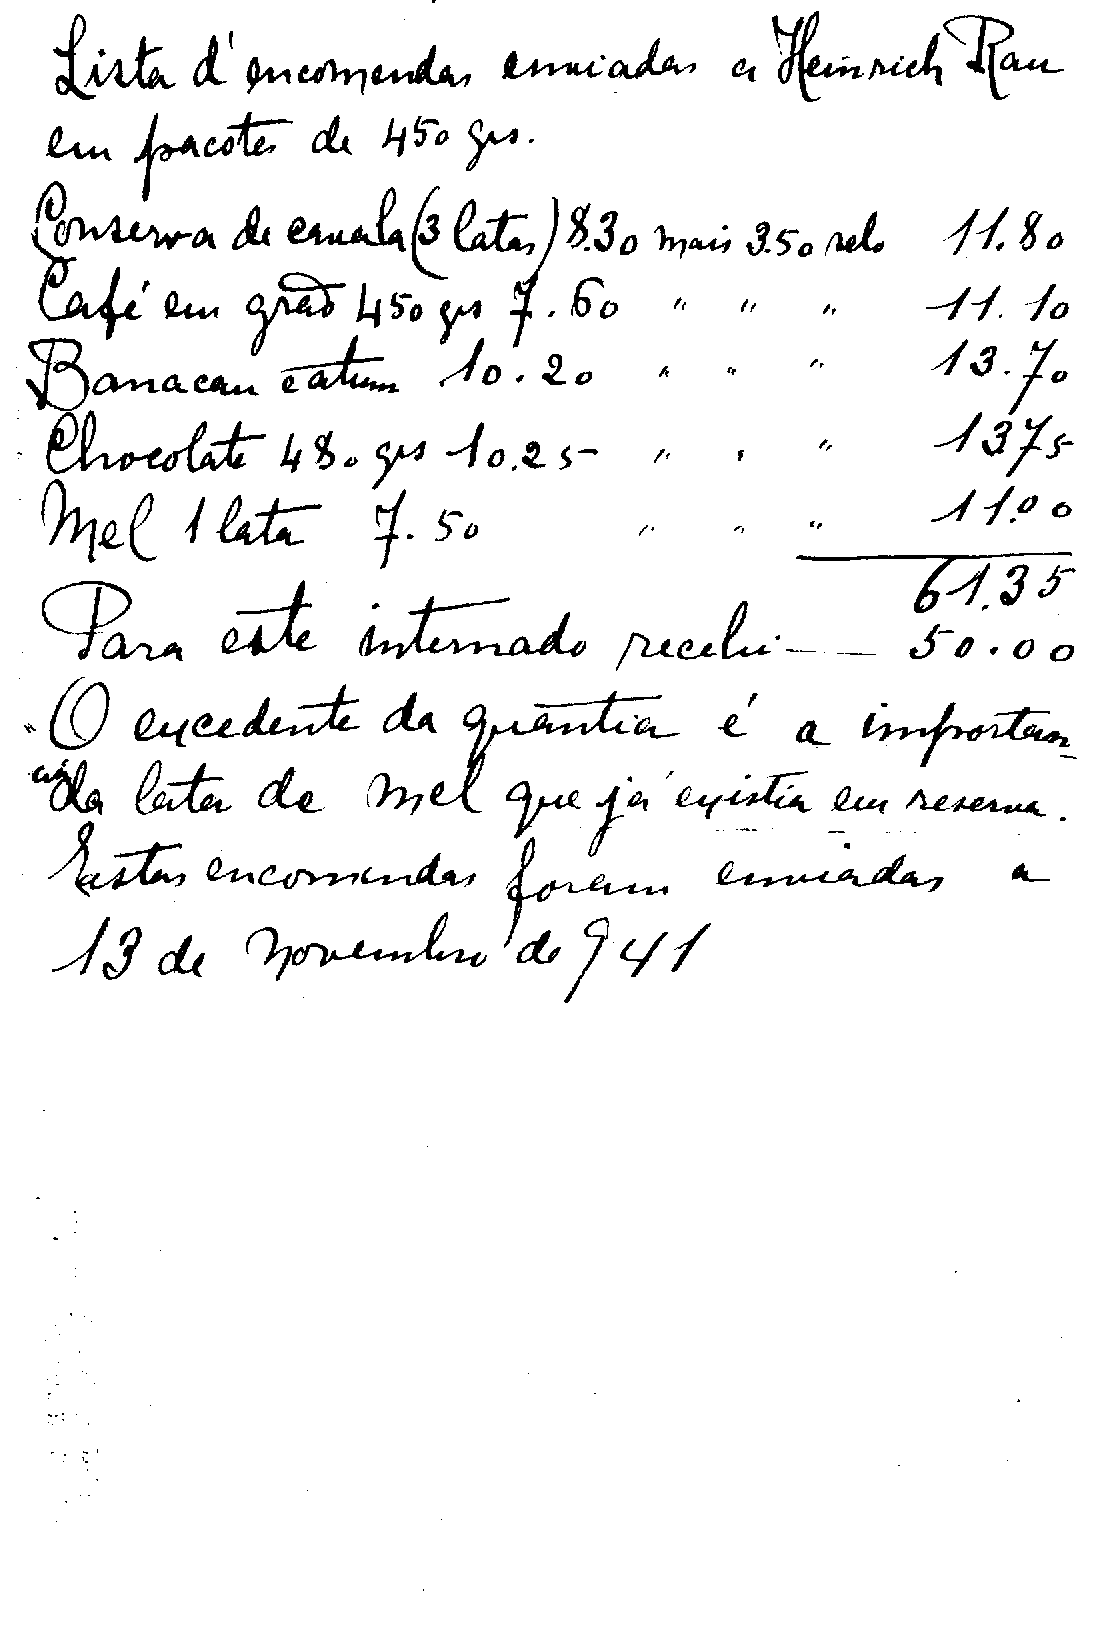 Lista d'encomendas enviadas a Heinrich Rau
em pacotes de 450 grs.
Conserva de cavala (3 latas) 8.30 mais 3.50 selo 11.80
Café em grão 450 grs 7.60 " " " 11.10
10.20 " " " 13.70
Chocolate 480 grs 10.25 " " " 13 75
Mel 1 lata 7.50 " " " 11.00
61.35
Para este internado recebi — — 50.00
O excedente da quantia é a importan-
cia da lata de mel que já existia em reserva.
Estas encomendas foram enviadas a
13 de novembro de 941